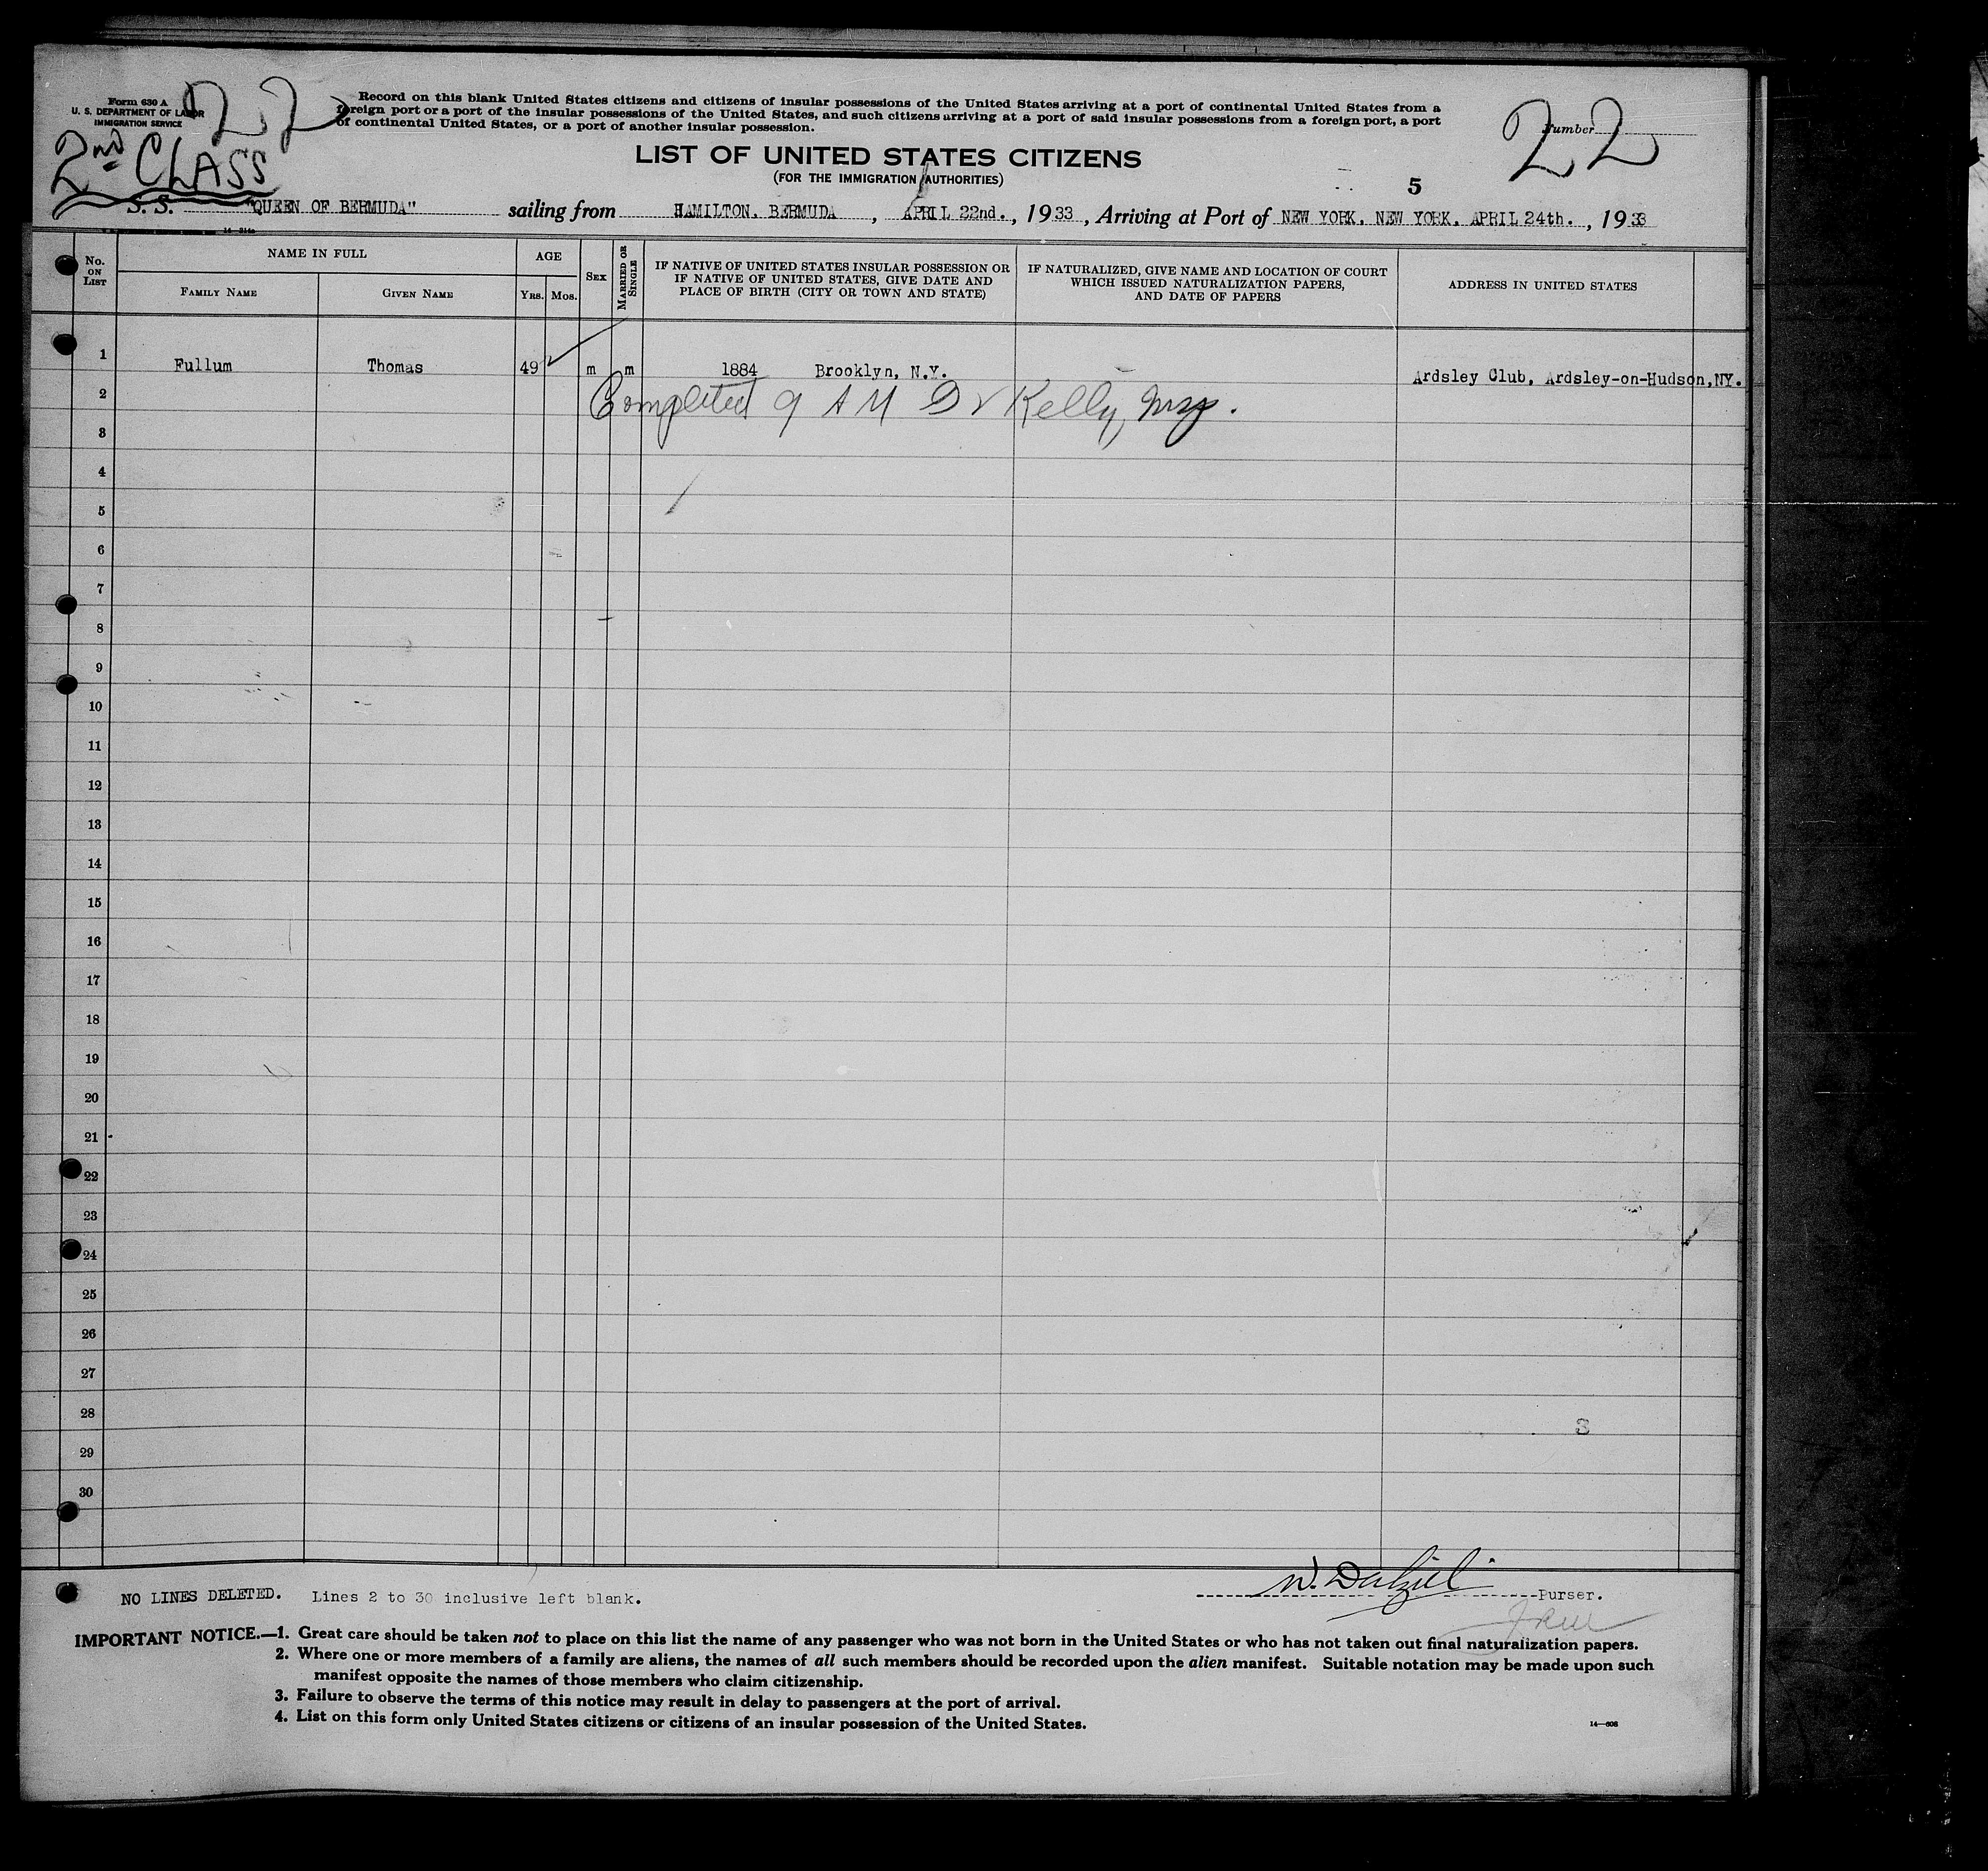 Form 630 A
U. S. DEPARTMENT OF LABOR
IMMIGRATION SERVICE
22
2ND CLASS
Record on this blank United States citizens and citizens of insular possessions of the United States arriving at a port of continental United States from a
foreign port or a port of the insular possessions of the United States, and such citizens arriving at a port of said insular possessions from a foreign port, a port
of continental United States, or a port of another insular possession.
Number 22
LIST OF UNITED STATES CITIZENS
(FOR THE IMMIGRATION AUTHORITIES)
5
S. S. "QUEEN OF BERMUDA" sailing from HAMILTON, BERMUDA, APRIL 22nd., 1933, Arriving at Port of NEW YORK, NEW YORK, APRIL 24th., 1933
No. ON LIST
NAME IN FULL
FAMILY NAME
GIVEN NAME
AGE
YRS.
MOS.
SEX
MARRIED OR SINGLE
IF NATIVE OF UNITED STATES INSULAR POSSESSION OR
IF NATIVE OF UNITED STATES, GIVE DATE AND
PLACE OF BIRTH (CITY OR TOWN AND STATE)
IF NATURALIZED, GIVE NAME AND LOCATION OF COURT
WHICH ISSUED NATURALIZATION PAPERS,
AND DATE OF PAPERS
ADDRESS IN UNITED STATES
1 Fullum Thomas 49 m m 1884 Brooklyn, N.Y. Ardsley Club, Ardsley-on-Hudson,NY.
2 Completed 9 AM Kelly
3
4
5
6
7
8
9
10
11
12
13
14
15
16
17
18
19
20
21
22
23
24
25
26
27
28
29
30
3
NO LINES DELETED. Lines 2 to 30 inclusive left blank.
W. Dalziel Purser.
IMPORTANT NOTICE.—1. Great care should be taken not to place on this list the name of any passenger who was not born in the United States or who has not taken out final naturalization papers.
2. Where one or more members of a family are aliens, the names of all such members should be recorded upon the alien manifest. Suitable notation may be made upon such
manifest opposite the names of those members who claim citizenship.
3. Failure to observe the terms of this notice may result in delay to passengers at the port of arrival.
4. List on this form only United States citizens or citizens of an insular possession of the United States.